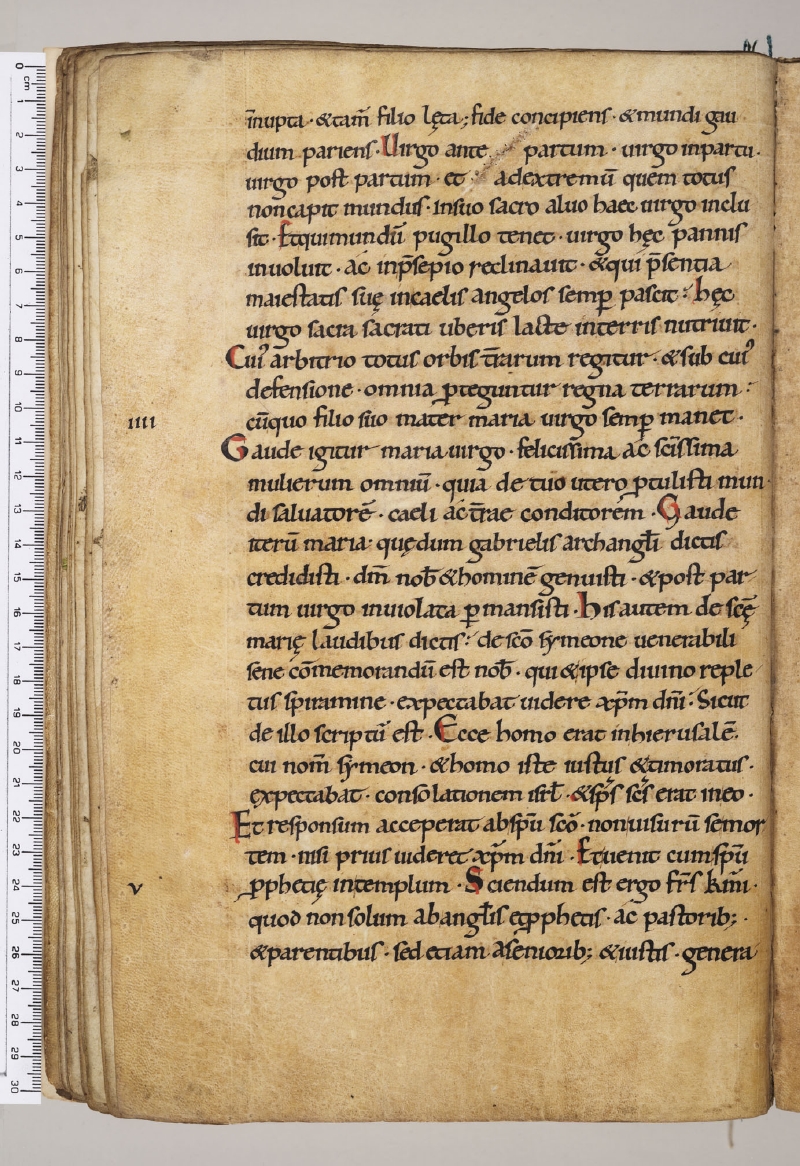 īnupta · &tam̄ filio lęta ; fide concipiens · &mundi gau
dium pariens · Virgo ante partum · uirgo inpartu ·
uirgo post partum · et adextremū quem totus
noncapit mundus · insuo sacro aluo haec uirgo inclu
sit · Etquimundū pugillo tenet · uirgo hęc pannis
inuoluit · ac inp̄sepio reclinauit · &qui p̄sentia
maiestatis suę incaelis angelos semp̄ pascit : hęc
uirgo sacra sacrati uberis lacte interris nutriuit ·
Cui᾽ arbitrio totus orbis t̄rarum regitur · &sub cui᾽
defensione · omnia ꝓteguntur regna terrarum :
cūquo filio suo mater maria uirgo semp̄ manet ·
IIII
Gaude igitur maria uirgo · felicissima ac sc̄issima
mulierum omniū · quia de tuo utero ꝓtulisti mun
di saluatorē · caeli ac t̄rae conditorem · Gaude
iterū maria · quędum gabrielis archangl̄i dictis
credidisti · dm̄ nob̄ &hominē genuisti · &post par
tum uirgo inuiolata ꝑmansisti · his autem de sc̄ę
marię laudibus dictis : de sc̄o symeone uenerabili
sene cōmemorandū est nob̄ · qui &ipse diuino reple
tus spiramine · expectabat uidere xp̄m dn̄i : Sicut
de illo scriptū est · Ecce homo erat inhierusalē ·
cui nom̄ symeon · &homo iste iustus &timoratus ·
expectabat · consolationem isrl̄ · &sp̄s sc̄s erat ineo ·
Et responsum acceperat absp̄u sc̄o · nonuisurū semor
tem · nisi prius uideret xp̄m dn̄i · Etuenit cumsp̄u
V
ꝓphetię intemplum · Sciendum est ergo fr̄s km̄i ·
quod nonsolum abangl̄is etꝓphetis · ac pastorib; ·
&parentibus · sed etiam Asenioribꝫ &iustis · genera